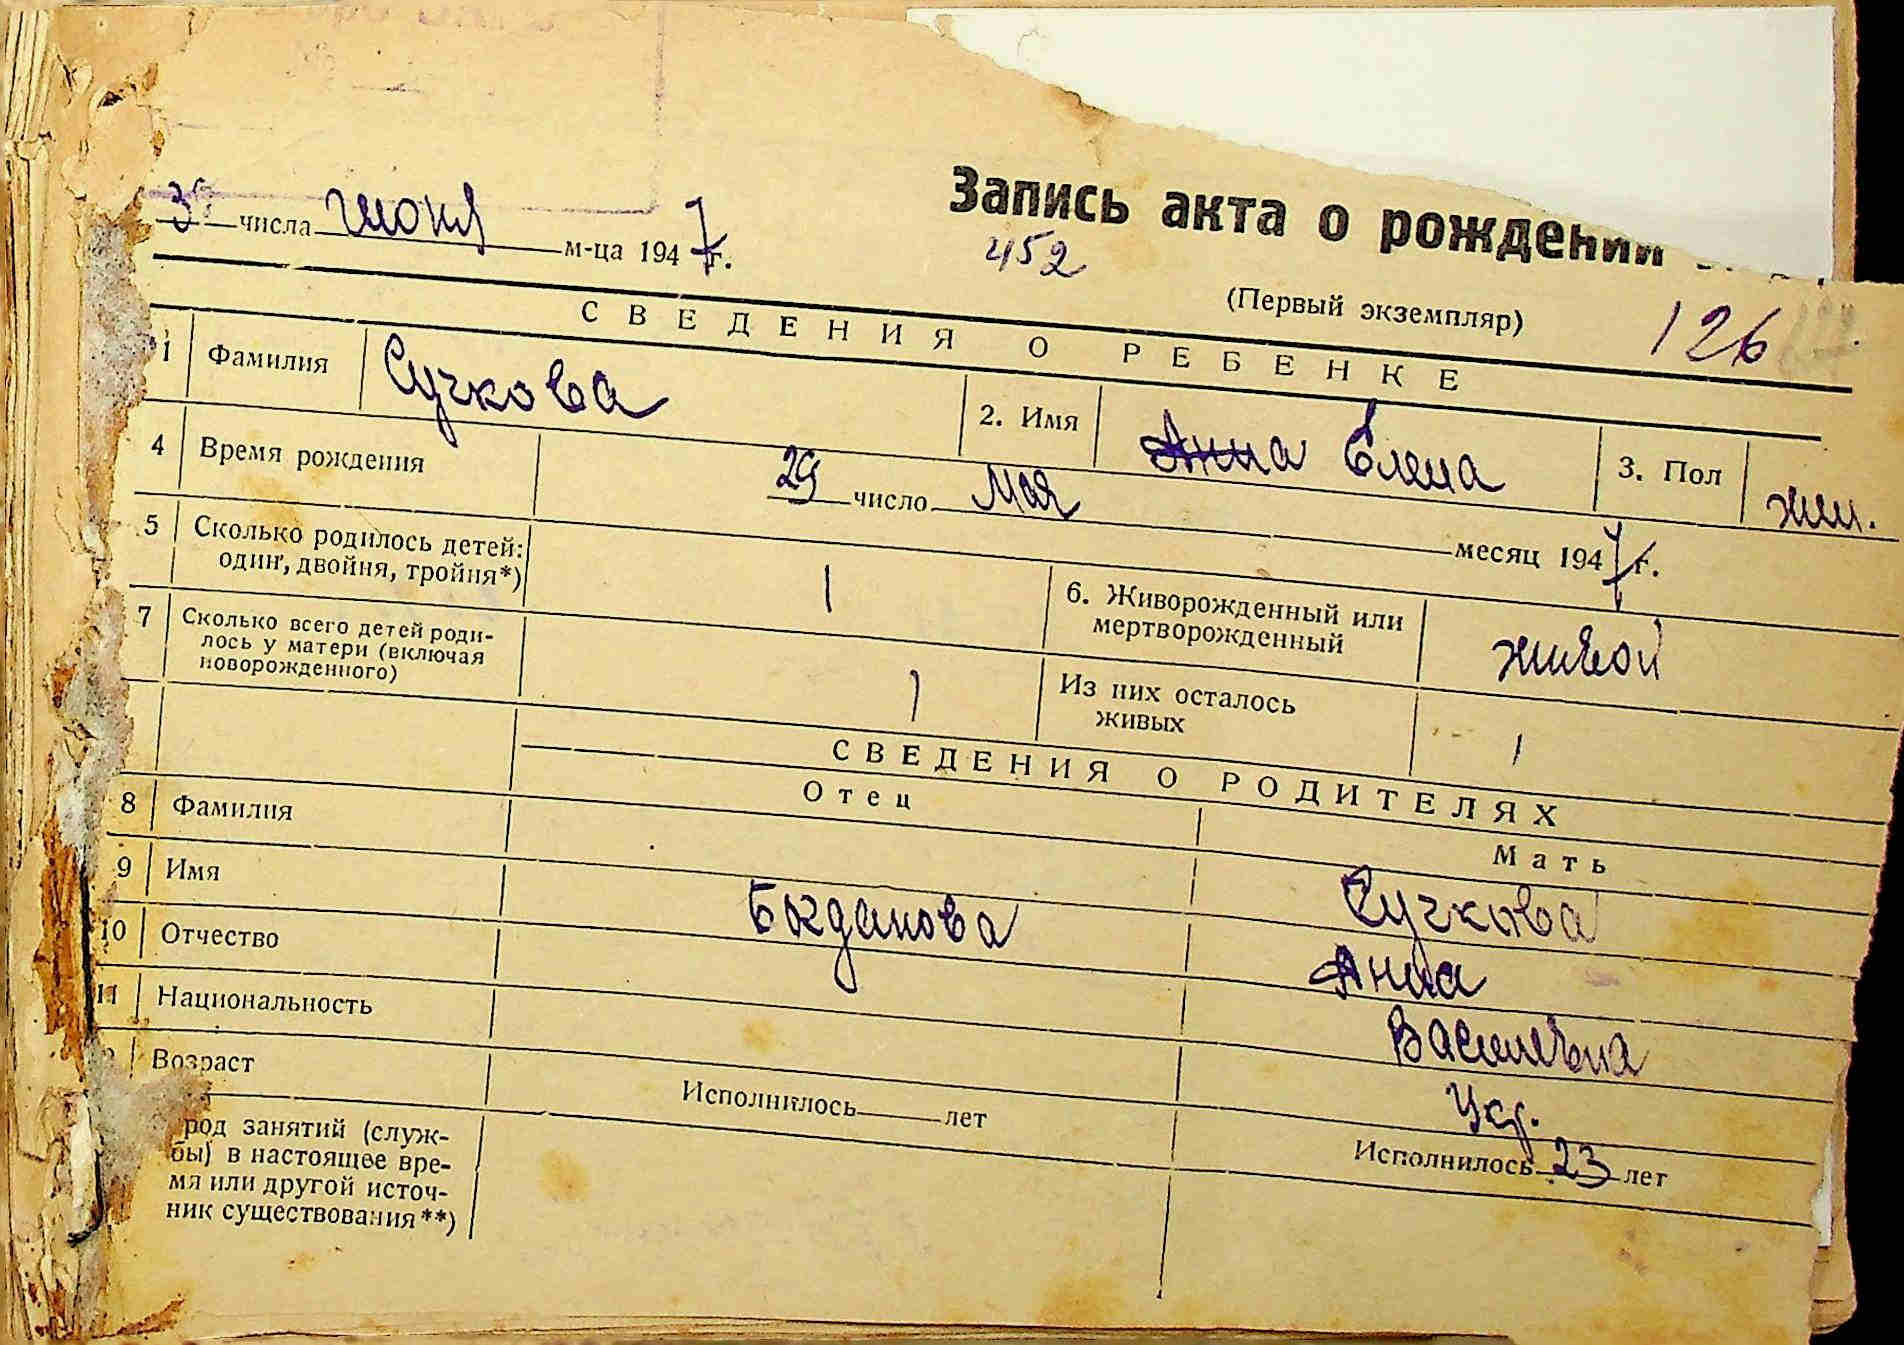 Запись акта о рождении
3 числа июня м-ца 1947 г.
452
(Первый экземпляр)
126
СВЕДЕНИЯ О РЕБЕНКЕ
1 Фамилия Сучкова 2. Имя Анна Елена 3. Пол жен.
4 Время рождения 29 число мая месяц 1947 г.
5 Сколько родилось детей:
один, двойня, тройня*) 1
6. Живорожденный или
мертворожденный живой
7 Сколько всего детей роди-
лось у матери (включая
новорожденного) 1
Из них осталось
живых 1
СВЕДЕНИЯ О РОДИТЕЛЯХ
Отец Мать
8 Фамилия Сучкова
9 Имя Богданова Анна
10 Отчество Васильевна
11 Национальность Укр.
Возраст Исполнилось лет Исполнилось 23 лет
род занятий (служ-
бы) в настоящее вре-
мя или другой источ-
ник существования**)